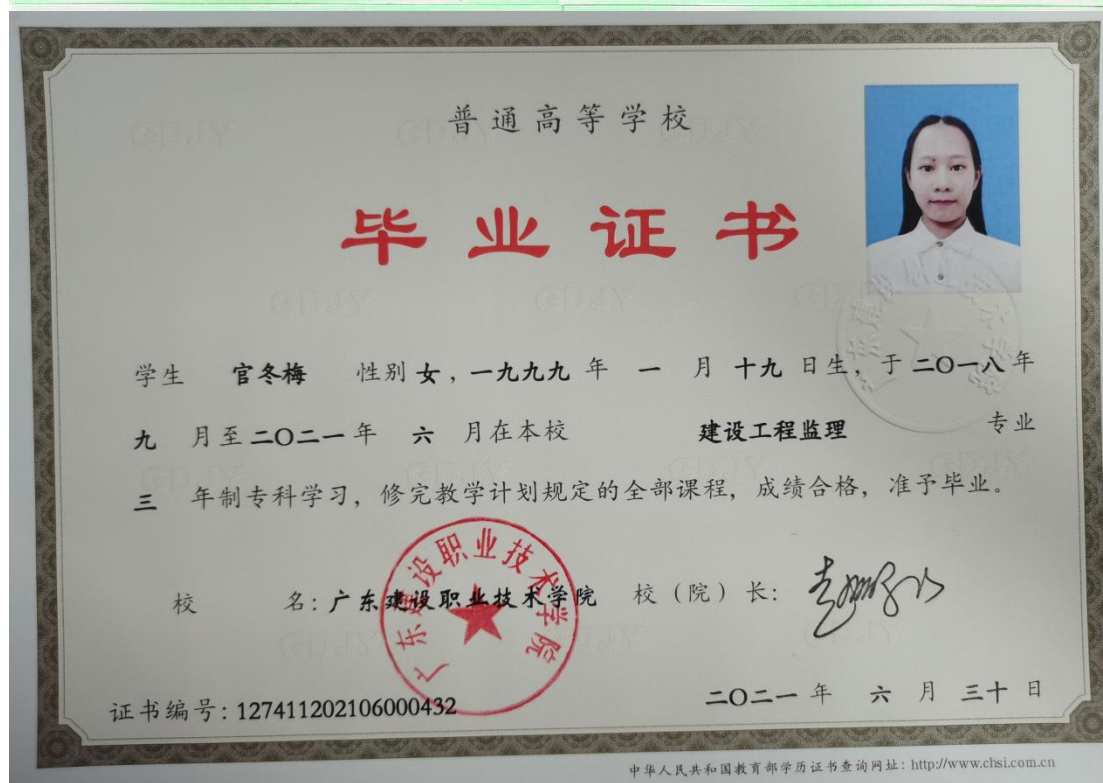 普通高等学校
毕业证书
学生 官冬梅 性别 女，一九九九 年 一 月 十九 日生，于 二〇一八 年
九 月至 二〇二一 年 六 月在本校 建设工程监理 专业
三 年制专科学习，修完教学计划规定的全部课程，成绩合格，准予毕业。
校 名：广东建设职业技术学院 校（院）长：
广东建设职业技术学院
证书编号：127411202106000432 二〇二一 年 六 月 三十 日
中华人民共和国教育部学历证书查询网址：http://www.chsi.com.cn